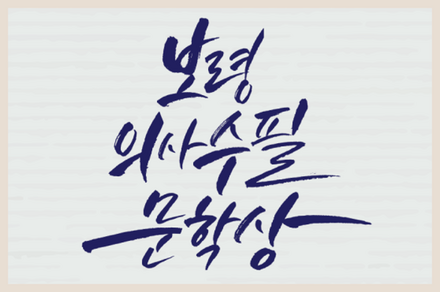 보령
의사수필
문학상